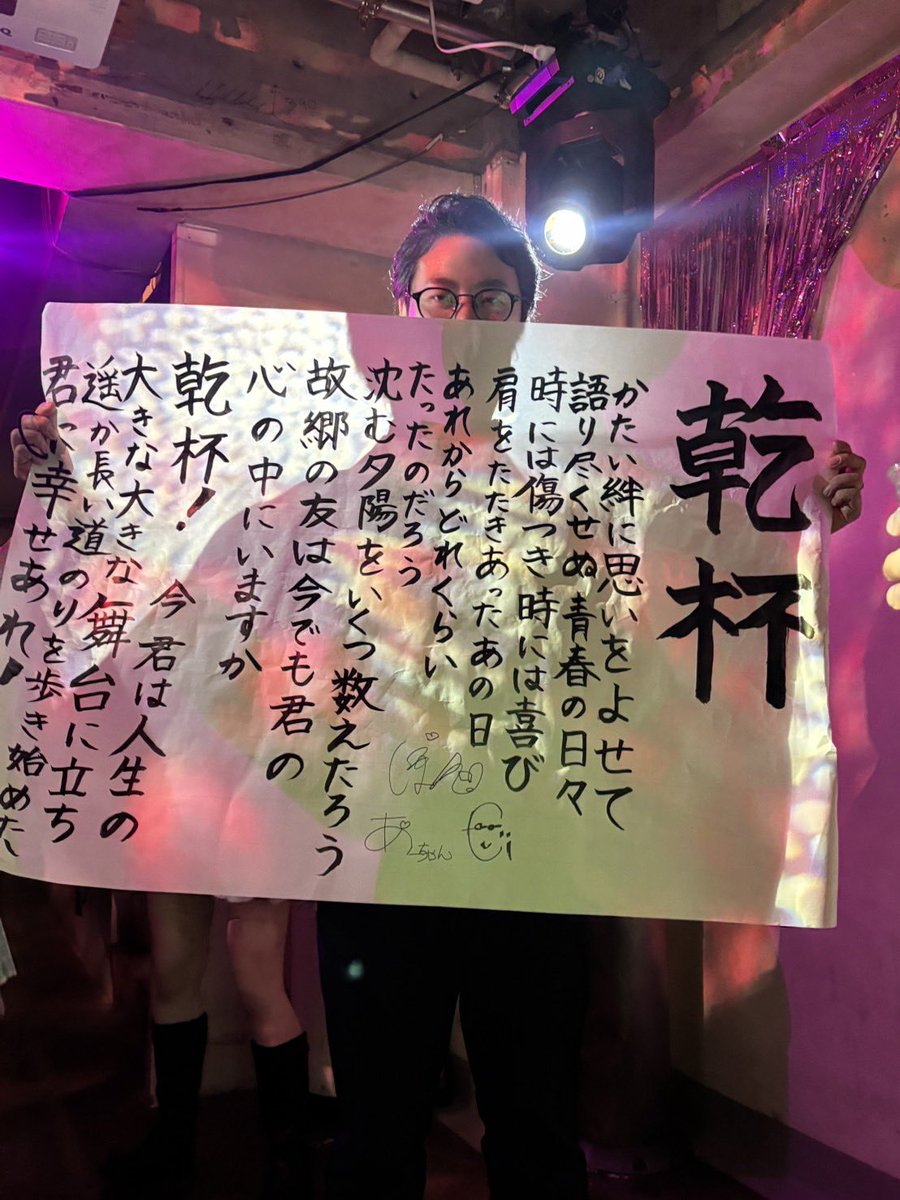 乾杯
かたい絆に思いをよせて
語り尽くせぬ青春の日々
時には傷つき時には喜び
肩をたたきあったあの日
あれからどれくらい
たったのだろう
沈む夕陽をいくつ数えたろう
故郷の友は今でも君の
心の中にいますか
乾杯！ 今君は人生の
大きな大きな舞台に立ち
遥か長い道のりを歩き始めた
君に幸せあれ！
あーちゃん